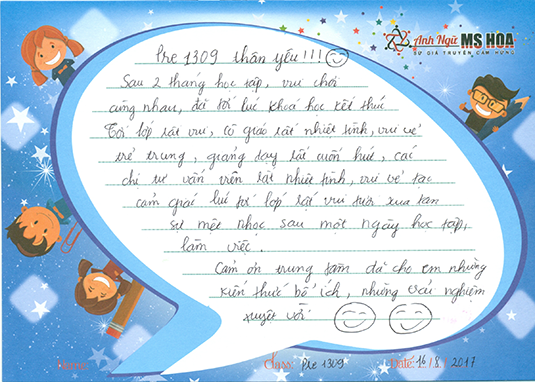 Anh Ngữ MS HOA
SỨ GIẢ TRUYỀN CẢM HỨNG
Pre 1309 thân yêu!!!
Sau 2 tháng học tập, vui chơi
cùng nhau, đã tới lúc khoá học kết thúc
Tới lớp rất vui, cô giáo rất nhiệt tình, vui vẻ
trẻ trung, giảng dạy rất cuốn hút, các
chị tư vấn viên rất nhiệt tình, vui vẻ tạo
cảm giác lúc tới lớp rất vui tươi xua tan
sự mệt nhọc sau một ngày học tập,
làm việc.
Cảm ơn trung tâm đã cho em những
kiến thức bổ ích, những trải nghiệm
tuyệt vời
Class: Pre 1309 Date: 16/8/2017